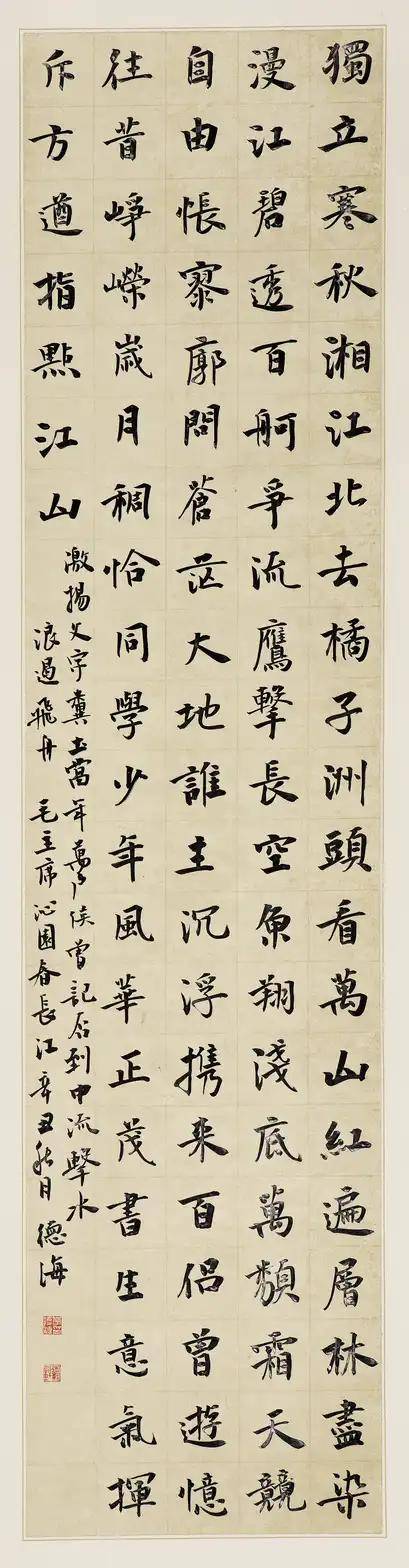 獨立寒秋湘江北去橘子洲頭看萬山紅遍層林盡染
漫江碧透百舸爭流鷹擊長空魚翔淺底萬類霜天競
自由悵寥廓問蒼茫大地誰主沉浮攜來百侶曾遊憶
往昔崢嶸歲月稠恰同學少年風華正茂書生意氣揮
斥方遒指點江山
激揚文字糞土當年萬戶侯曾記否到中流擊水
浪遏飛舟 毛主席沁園春長江辛丑秋月 德海